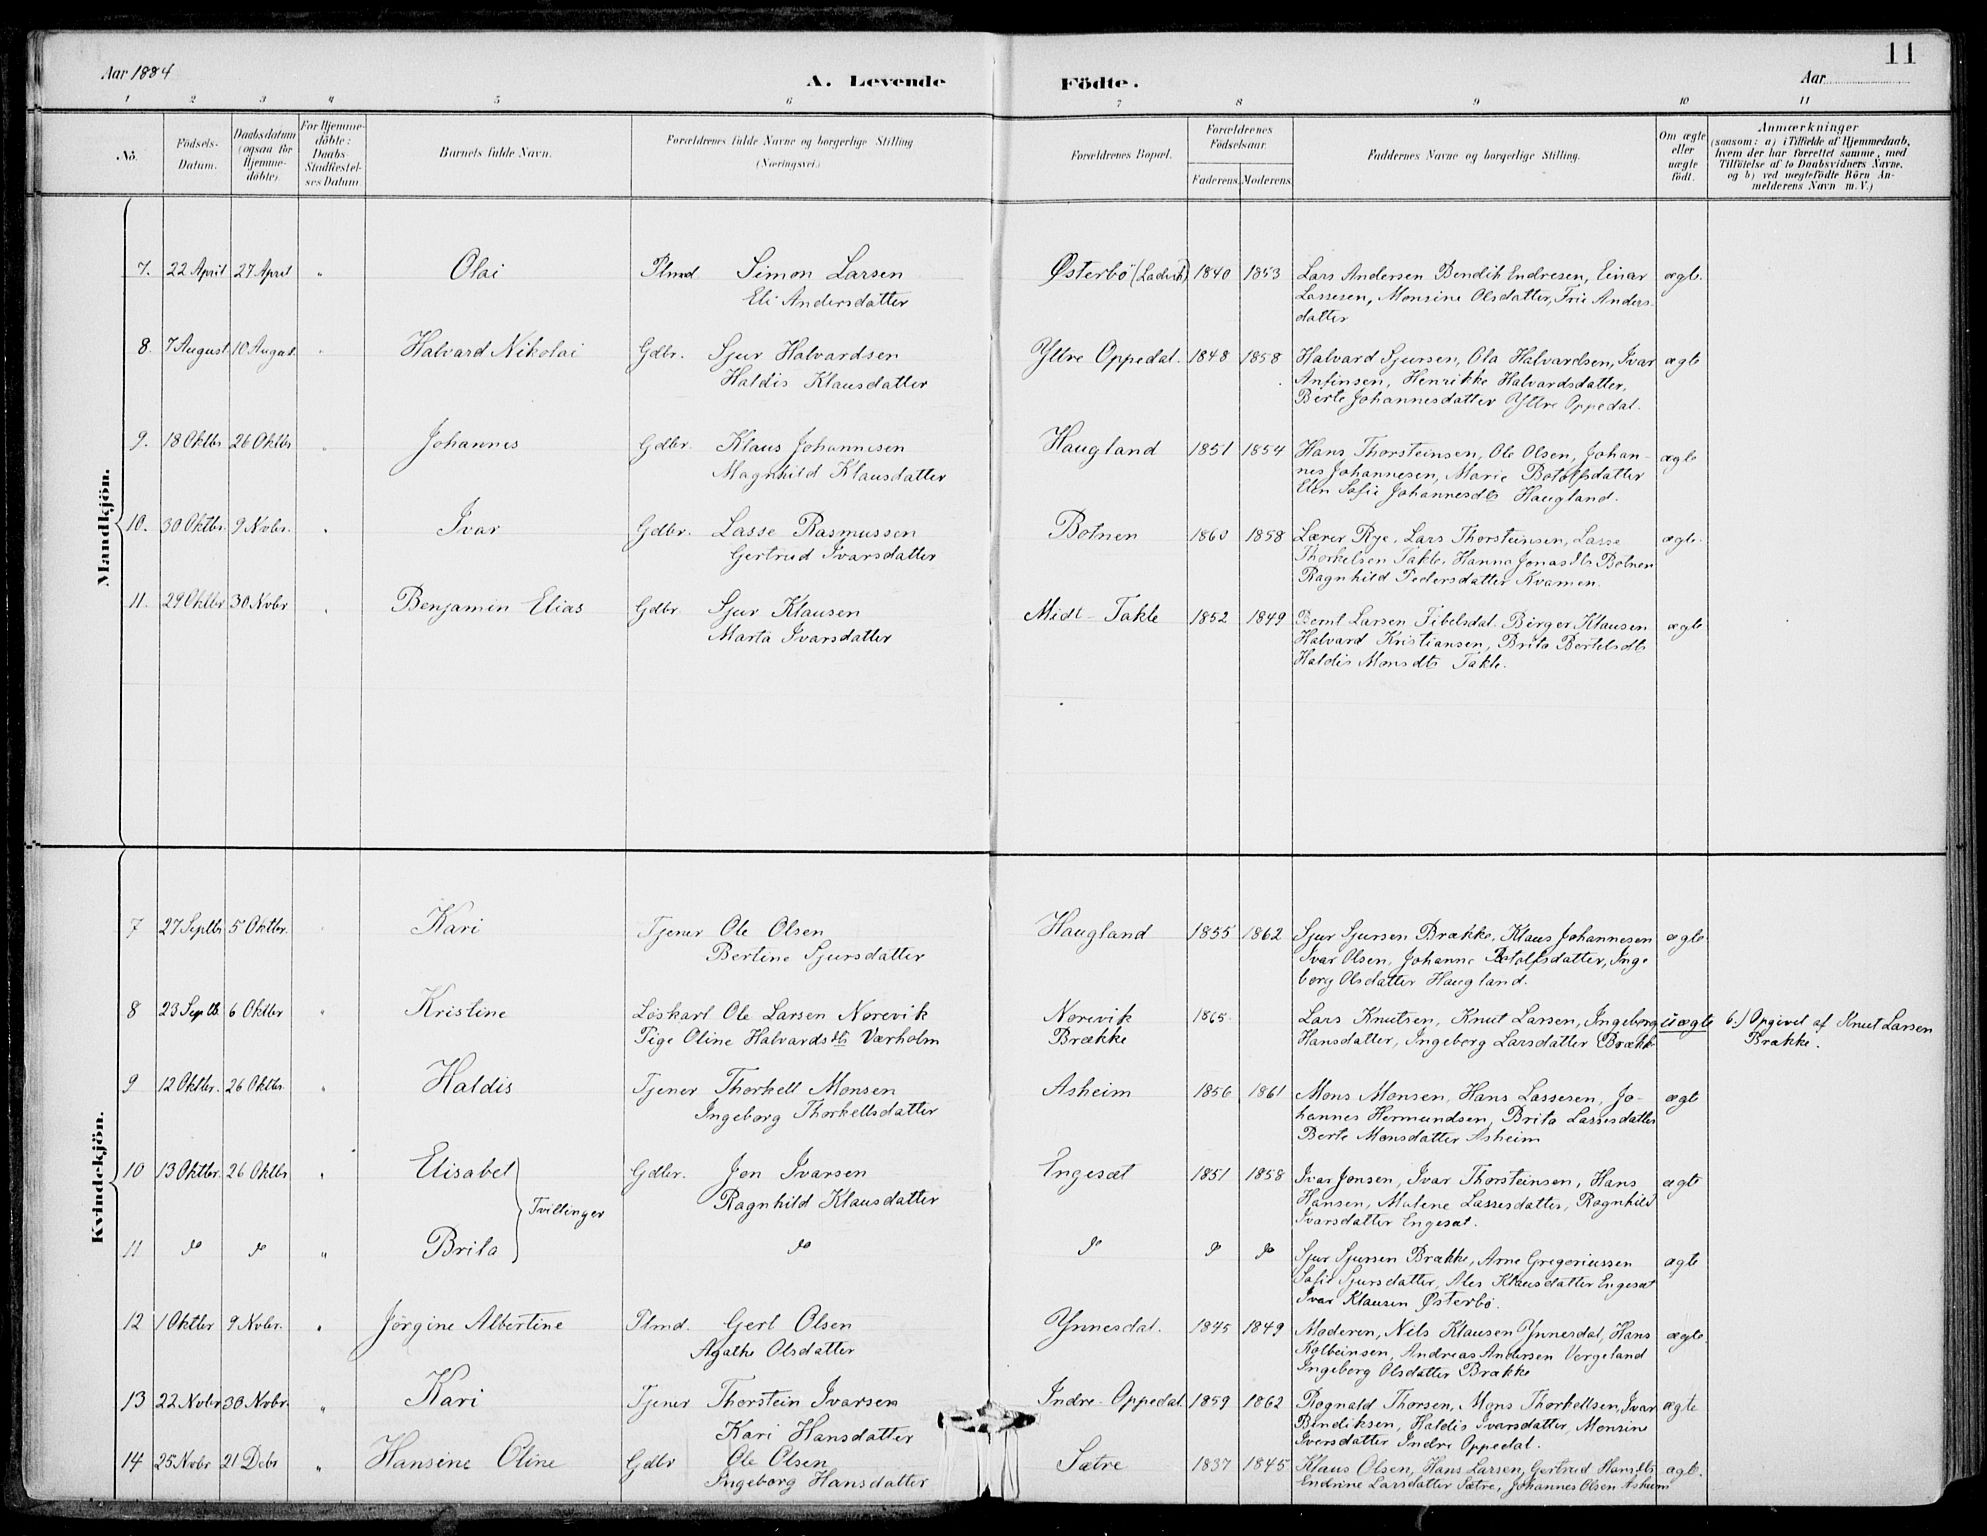 Aar 1884
A. Levende
Födte.
Aar
11
1 2 3 4 5 6 7 8 9 10 11
No.
Födsels-
Datum.
Daabsdatum
(ogsaa for
Hjemme-
döbte).
For Hjemme-
döbte:
Daabs-
Stadfæstel-
ses Datum.
Barnets fulde Navn.
Forældrenes fulde Navne og borgerlige Stilling
(Næringsvei.)
Forældrenes Bopæl.
Forældrenes
Födselsaar.
Faderens. Moderens.
Faddernes Navne og borgerlige Stilling.
Om ægte
eller
uægte
födt.
Anmærkninger
(saasom: a) i Tilfælde af Hjemmedaab,
hvem der har forrettet samme, med
Tilföielse af to Daabsvidners Navne,
og b) ved uægtefödte Börn An-
melderens Navn m. V.)
Mandkjön.
7. 22 April 27 April " Olai Plmd Simon Larsen Østerbö (Ladvik) 1840 1853 Lars Andersen Bendik Endresen, Einar ægte.
Eli Andersdatter Lassesen, Monsine Olsdatter, Anders
datter
8. 7 August 10 August " Halvard Nikolai Gdbr. Sjur Halvardsen Yttre Oppedal. 1848 1858 Halvard Sjursen, Ola Halvardsen, Ivar ægte
Haldis Klausdatter Anfinsen, Henrikke Halvardsdatter,
Berte Johannesdatter Yttre Oppedal.
9. 18 Oktbr 26 Oktbr " Johannes Gdbr. Klaus Johannesen Haugland 1851 1854 Hans Thorsteinsen, Ole Olsen, Johan- ægte
Magnhild Klausdatter nes Johannesen, Marie Botolfsdatter
Elen Sofie Johannesdtr Haugland.
10. 30 Oktbr. 9 Novbr. " Ivar Gdbr. Lasse Rasmussen Botnen 1860 1858 Lærer Rye, Lars Thorsteinsen, Lasse ægte.
Gertrud Ivarsdatter Thorkelsen Takle, Hanna Jonasdtr Botnen
Ragnhild Pedersdatter Kvamen.
11. 29 Oktbr 30 Novbr " Benjamin Elias Gdbr Sjur Klausen Midt-Takle 1852 1849 Bernt Larsen Fibelsdal, Birger Klausen ægte
Marta Ivarsdatter Halvard Kristiansen, Brita Bertelsdtr
Haldis Monsdtr Takle.
Kvindekjön.
7 27 Septbr 5 Oktbr. " Kari Tjener Ole Olsen Haugland 1855 1862 Sjur Sjursen Brække, Klaus Johannesen ægte
Bertine Sjursdatter Ivar Olsen, Johanne Botolfsdatter, Inge
borg Olsdatter Haugland.
8 23 Septb. 6 Oktbr " Kristine Löskarl Ole Larsen Norevik Norevik 1865 Lars Knutsen, Knut Larsen, Ingeborg uægte 6.) Opgivet af Knut Larsen
Pige Oline Halvardsdtr Værholm Brække Hansdatter, Ingeborg Larsdatter Brække Brække.
9 12 Oktbr. 26 Oktbr. " Haldis Tjener Thorkell Monsen Asheim 1856 1861 Mons Monsen, Hans Lassesen, Jo- ægte
Ingeborg Thorkellsdatter hannes Hermundsen, Brita Lassesdatter
Berte Monsdatter Asheim
10 13 Oktbr. 26 Oktbr " Elisabet Gdbr. Jon Ivarsen Engesæt 1851 1858 Ivar Jonsen, Ivar Thorsteinsen, Hans ægte
Tvillinger Ragnhild Klausdatter Hansen, Malene Lassesdatter, Ragnhild
Ivarsdatter Engesæt.
11 do do " Brita do do do do Sjur Sjursen Brække, Arne Gregoriussen ægte
Sofie Sjursdatter, Ales Klausdatter Engesæt
Ivar Klausen Østerbö.
12 1 Oktbr 9 Novbr. " Jörgine Albertine Plmd. Gert Olsen Ynnesdal. 1845 1849 Moderen, Nils Klausen Ynnesdal, Hans ægte.
Agathe Olsdatter Kolbeinsen, Andreas Andersen Vergeland
Ingeborg Olsdatter Brække
13 22 Novbr 30 Novbr. " Kari Tjener Thorstein Ivarsen Indre Oppedal 1859 1862 Ragnald Thorsen, Mons Thorkellsen, Ivar ægte
Kari Hansdatter Bendiksen, Haldis Ivarsdatter, Monsine
Iversdatter Indre Oppedal.
14 25 Novbr 21 Debr " Hansine Oline Gdbr Ole Olsen Sætre 1837 1845 Klaus Olsen, Hans Larsen, Gertrud Hansdtr ægte.
Ingeborg Hansdatter Endrine Larsdatter Sætre, Johannes Olsen Asheim